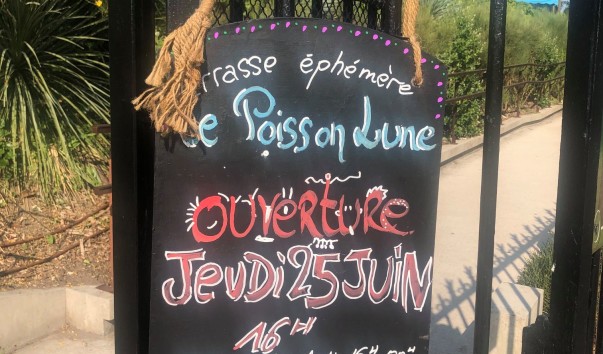 rrasse éphémère
Le Poisson Lune
OUVERTURE
JeuDi 25 JUIN
16H